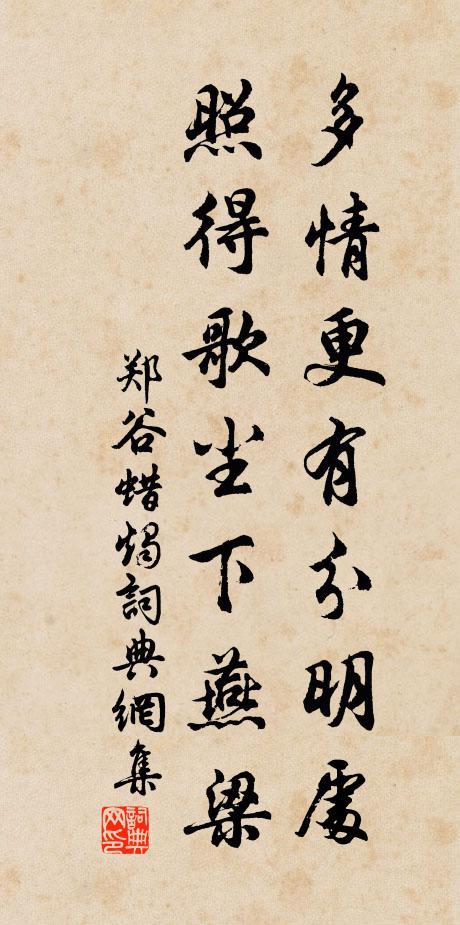 多情更有分明處
照得歌尘下燕梁
郑谷蜡烛詞典網集
詞典網印